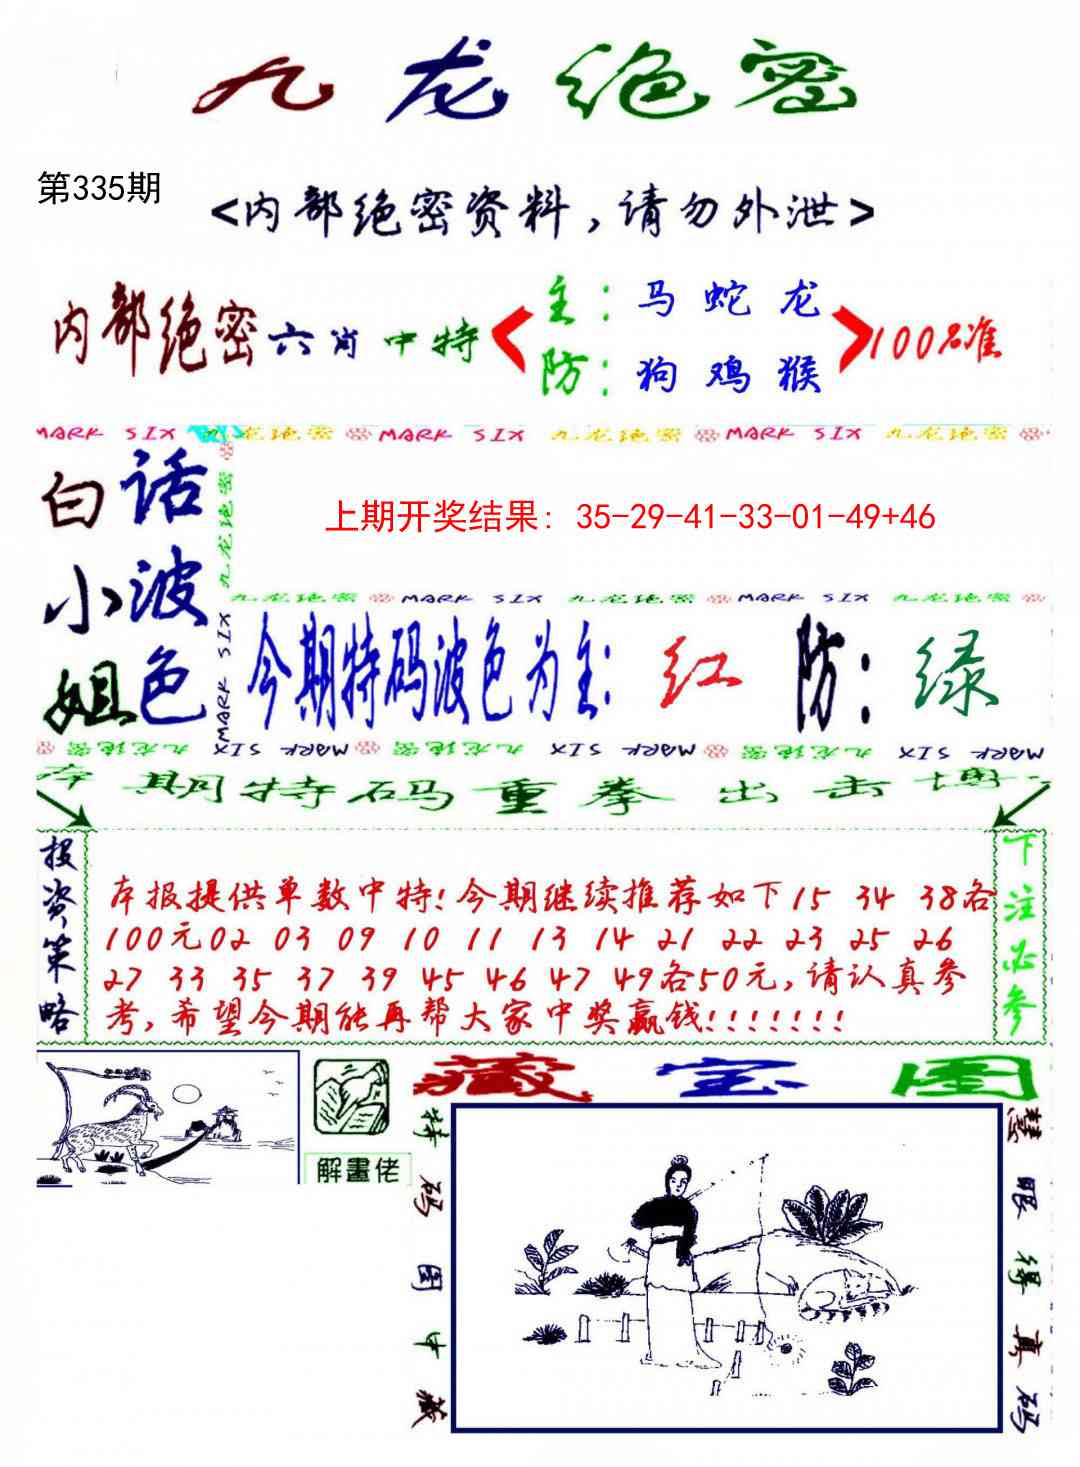 九龙绝密
第335期
<内部绝密资料,请勿外泄>
内部绝密六肖中特
主:马 蛇 龙
防:狗 鸡 猴
100%准
MARK SIX 九龙绝密 MARK SIX 九龙绝密 MARK SIX 九龙绝密
白话
小波
姐色
九龙绝密
MARK SIX
上期开奖结果: 35-29-41-33-01-49+46
九龙绝密 MARK SIX 九龙绝密 MARK SIX 九龙绝密
今期特码波色为主:红 防:绿
九龙绝密 MARK SIX 九龙绝密 MARK SIX 九龙绝密 MARK SIX
本期特码重拳出击博
投资策略
本报提供单数中特!今期继续推荐如下15 34 38各
100元02 03 09 10 11 13 14 21 22 23 25 26
27 33 35 37 39 45 46 47 49各50元,请认真参
考,希望今期能再帮大家中奖赢钱!!!!!!!
下注必参
解畫佬
藏宝图
特码图中藏
慧眼得真码